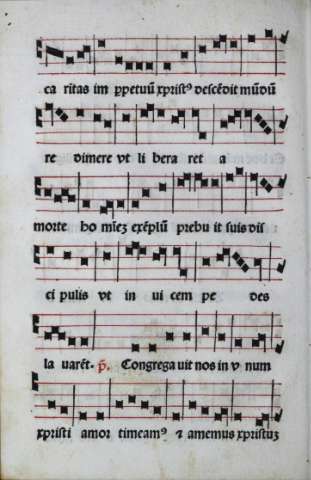 ca ritas im ꝑpetuū xp̄istꝰ descēdit mūdū
re dimere vt li bera ret a
morte ho mīez exēplū prebu it suis dis
ci pulis vt in ui cem pe des
la uarēt. p̄. Congrega uit nos in v num
xp̄isti amor timeamꝰ ⁊ amemus xpristuʒ